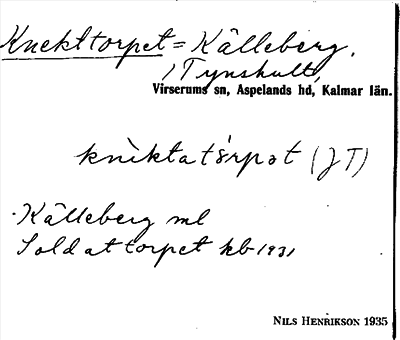 Knekttorpet = Källeberg,
/Tynshult,
Virserums sn, Aspelands hd, Kalmar län.
knìktatórpət (JT)
Källeberg ml
Soldattorpet kb 1931
NILS HENRIKSON 1935